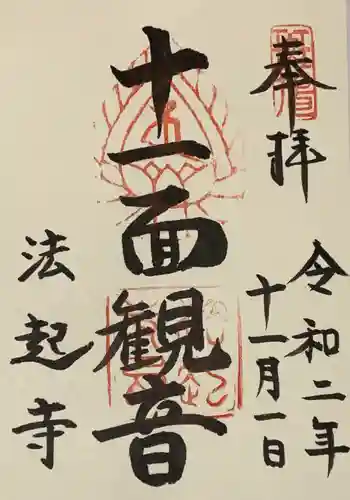 奉拝
令和二年
十一月一日
十一面観音
法起寺